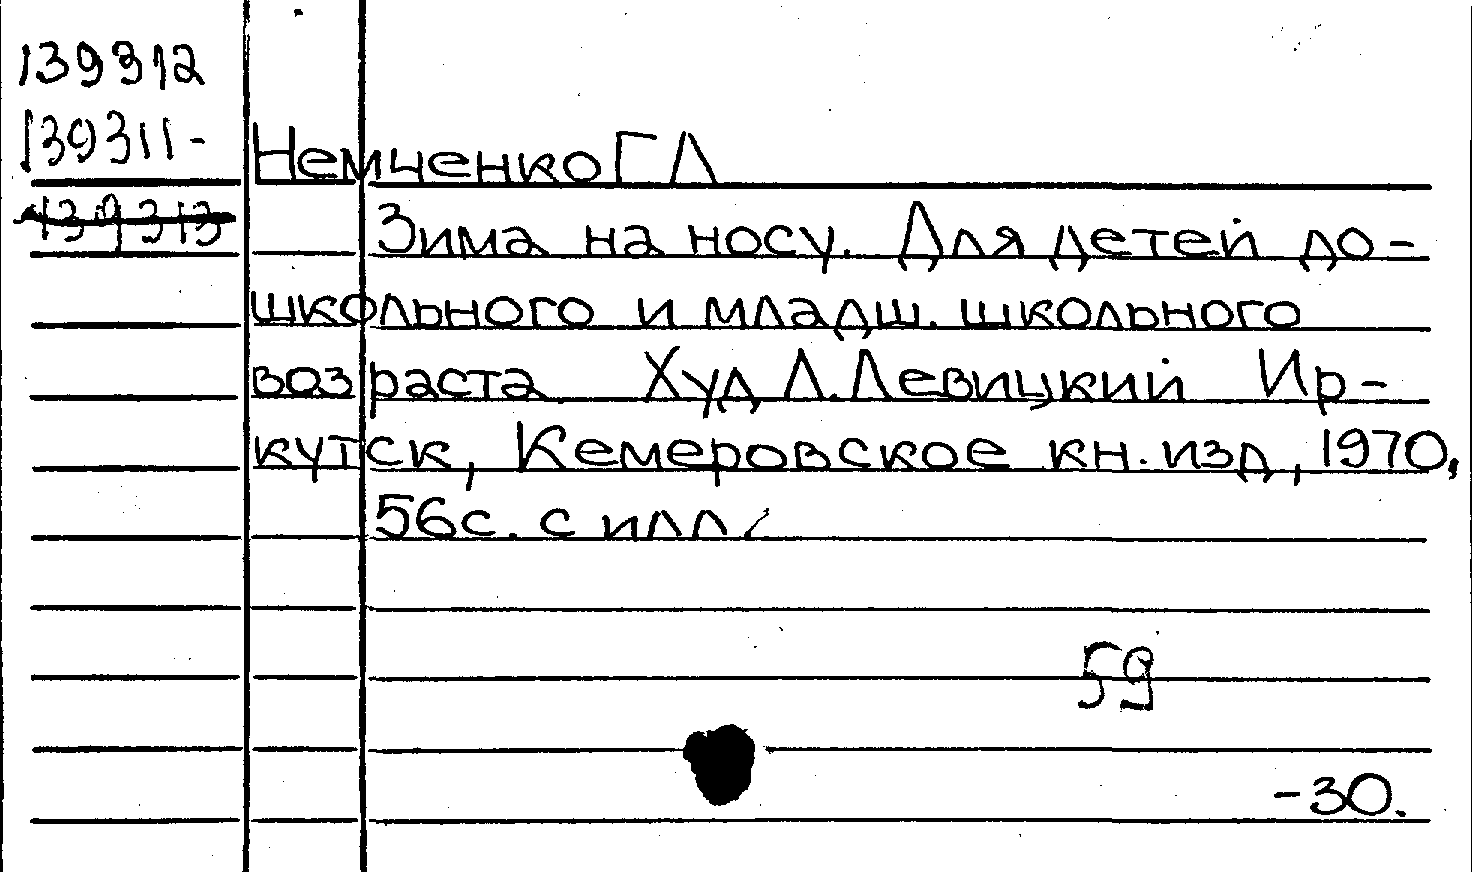 139312
139311-
Немченко Г Л
139313
Зима на носу. Для детей до-
школьного и младш. школьного
возраста Худ Л. Левицкий Ир-
кутск, Кемеровское кн. изд, 1970,
56с. с илл.
59
-30.